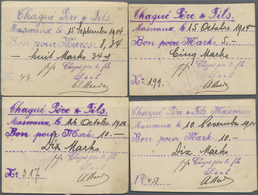 Chaqué Père & Fils.
Masevaux, le 15 Septembre 1914
Bon pour Marcs: 8, 34
huit Marks 34
pp. Chaqué père & fils
43
Chaqué Père & Fils.
Masevaux, le 15. October 1914
Bon pour Mark: 5.—
Cinq Marks
pp. Chaqué père & fils
Nr. 199.
Chaqué Père & Fils.
Masevaux, le 26. October 1914
Bon pour Mark: 10.—
Dix Marks
pp. Chaqué père & fils
Nr. 317
Chaqué Père & Fils Masevaux
Masevaux, le 10. November 1914
Bon pour Mark: 10.—
Dix Marks
pp. Chaqué père & fils